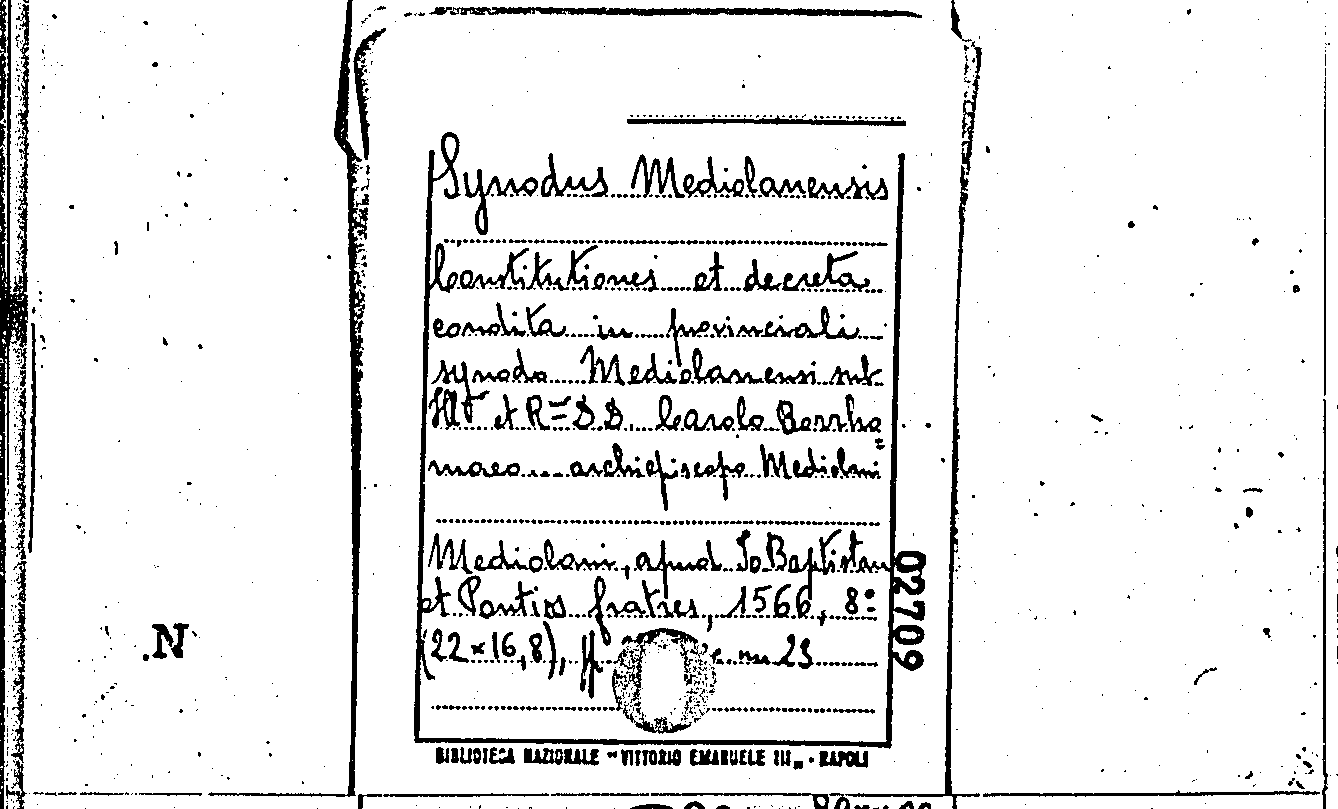 Synodus Mediolanensis
Constitutiones et decreta
condita in provinciali
synodo Mediolanensi sub
Ill.mo et R.mo D.D. Carolo Borrho=
maeo... archiepiscopo Mediolani
Mediolani, apud Io. Baptistam
et Pontios fratres, 1566, 8º
(22×16,8), ff nn 23
02709
N.
BIBLIOTECA NAZIONALE "VITTORIO EMANUELE III„ - NAPOLI